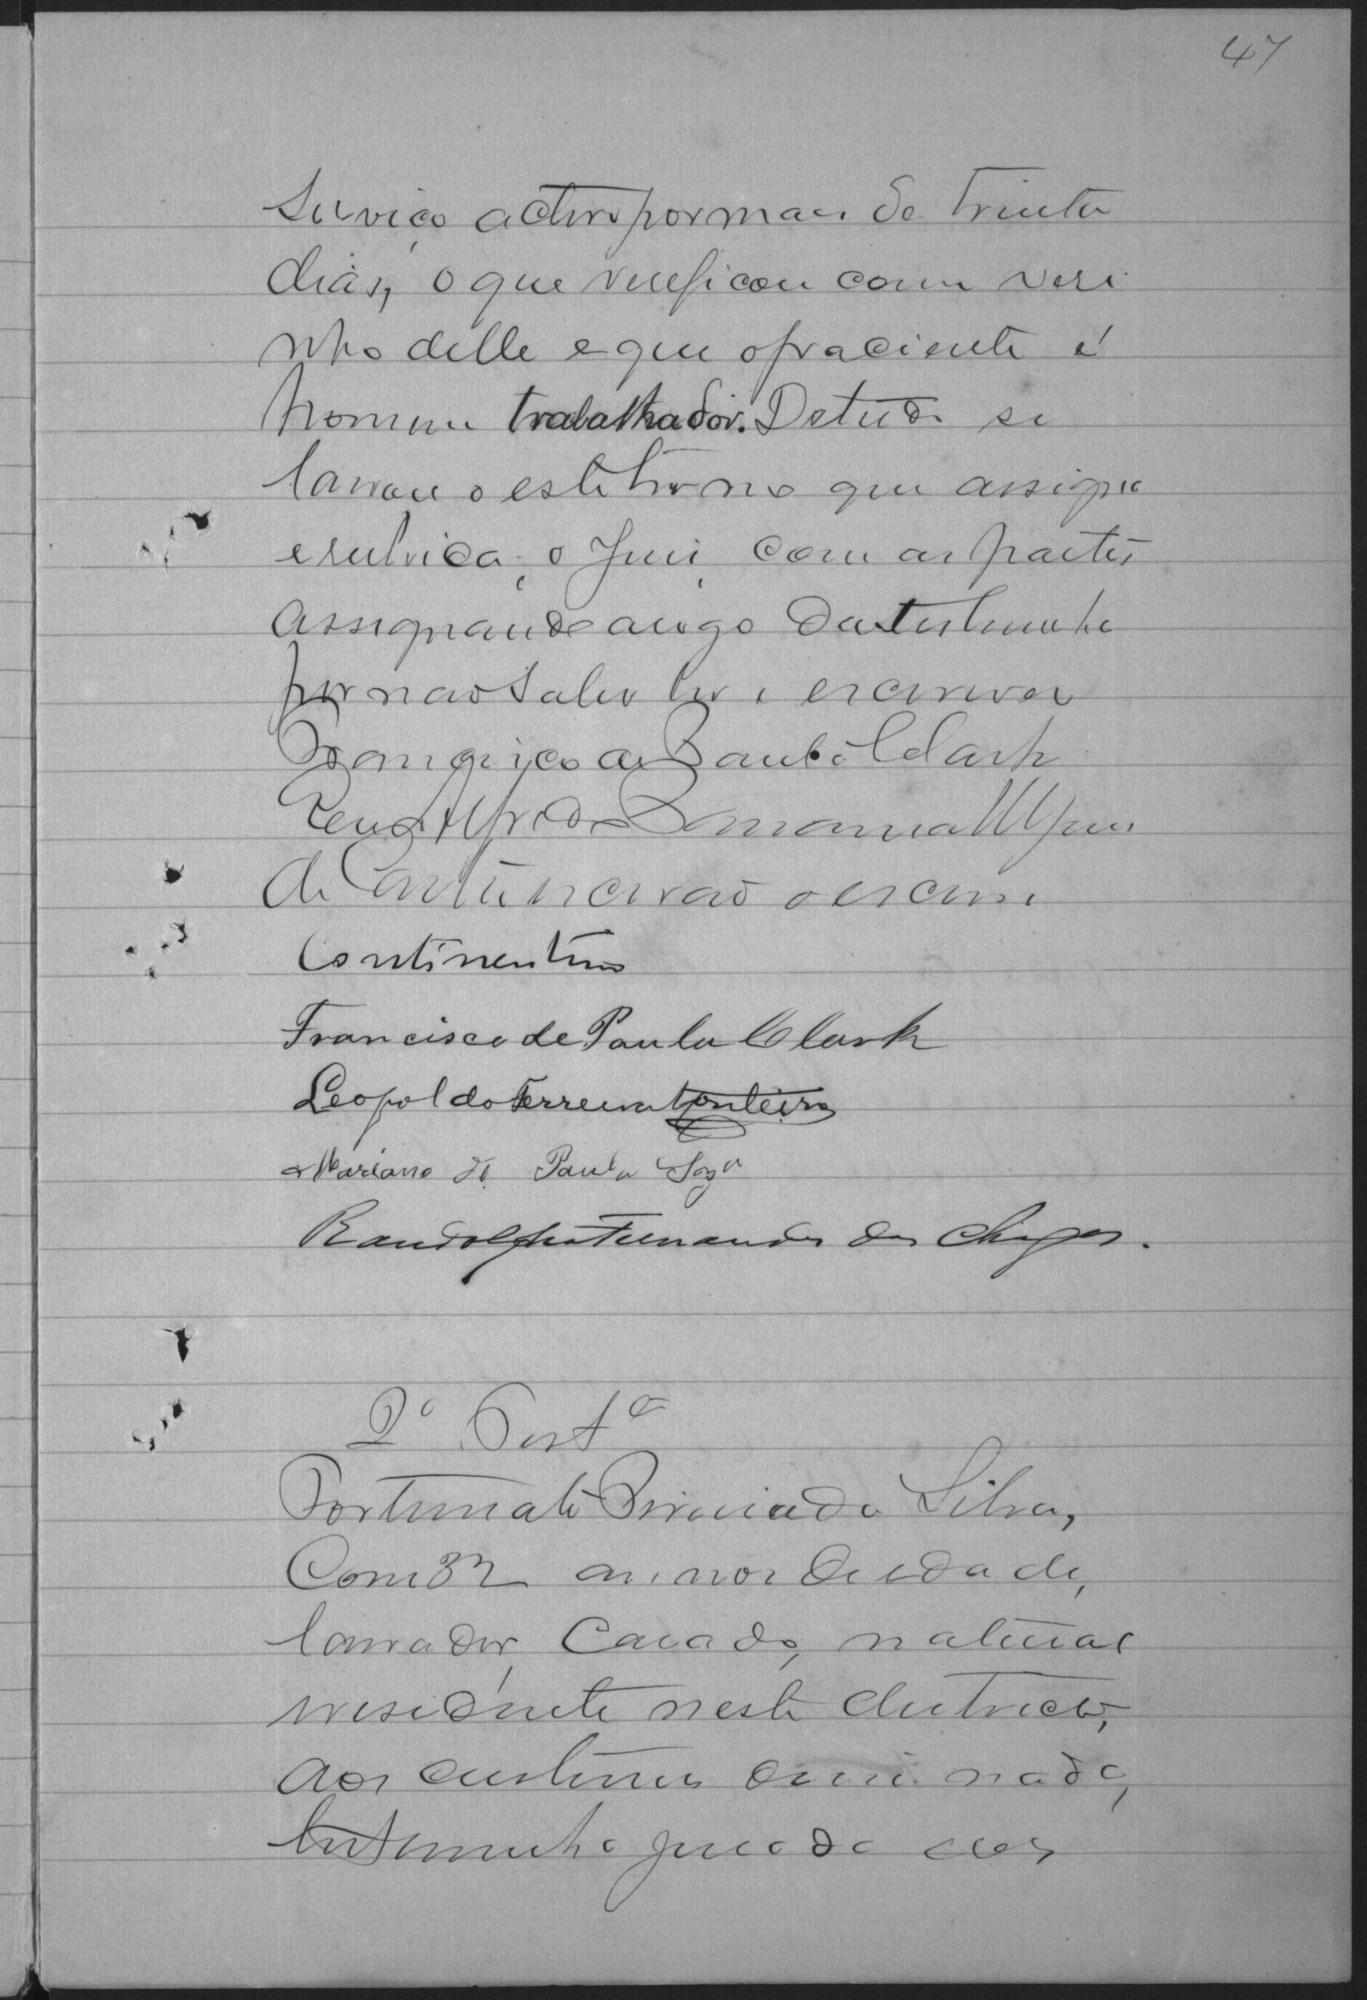 47
serviço activo por mais de trinta
dias, o que verificou como visi
nho delle e que o paciente é
homem trabalhador. De tudo se
lavrou o este termo que assigna
e rubrica, o Juiz, com as partes
assignando a rogo da testemunha
por não saber ler e escrever
Francisco de Paula Clark
Eu,
de escrivão o escrevi
Continentino
Francisco de Paula Clark
Leopoldo Ferreira Monteiro
Mariano de Paula Sozª
Randolpho Fernandes das Chagas.
2ª Testª
Fortunato Pereira da Silva,
Com 32 annos de edade,
lavrador, casado, natural
residente neste districto,
aos custumes disse nada,
testemunha jurada aos